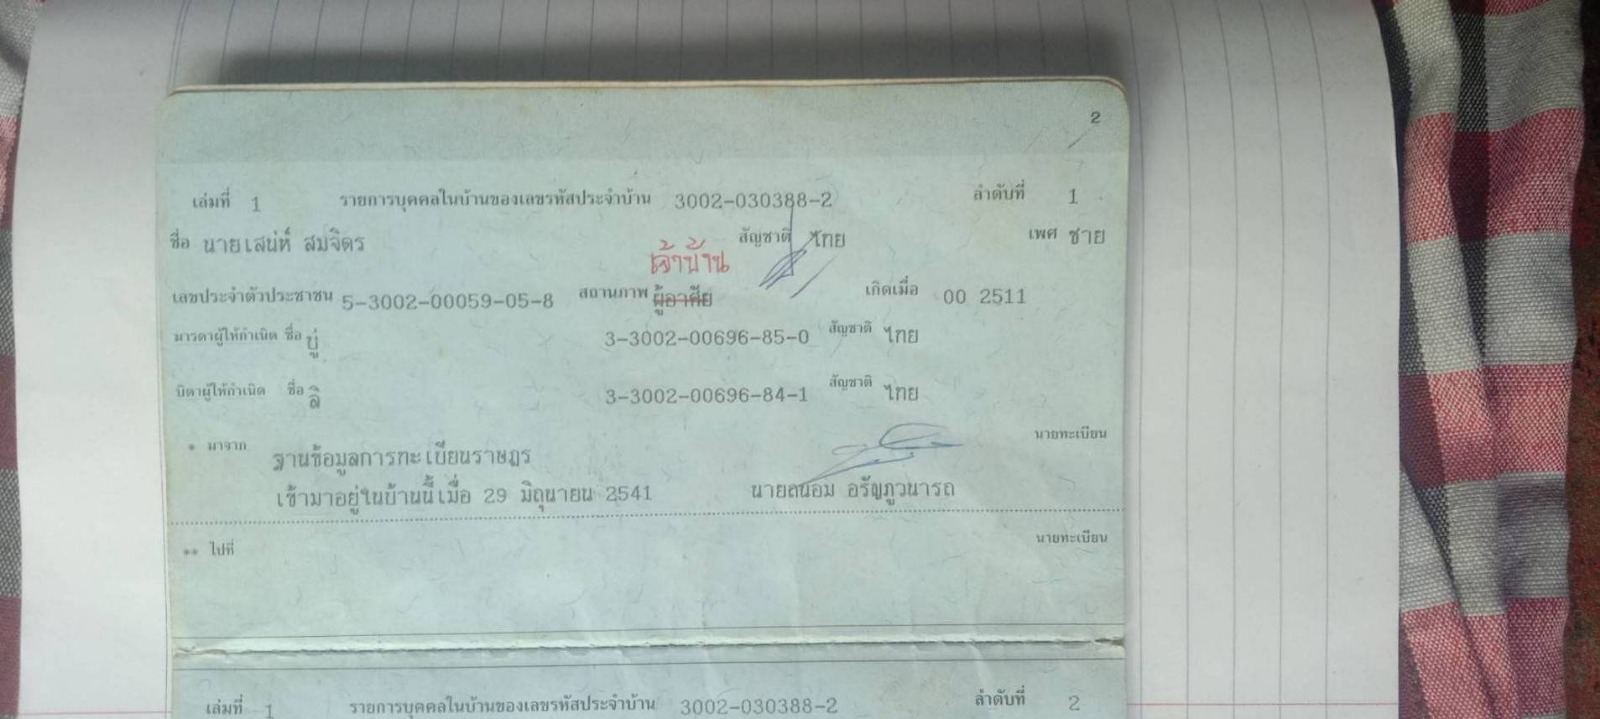 2
เล่มที่ 1 รายการบุคคลในบ้านของเลขรหัสประจำบ้าน 3002-030388-2 ลำดับที่ 1
ชื่อ นายเสน่ห์ สมจิตร สัญชาติ ไทย เพศ ชาย
เจ้าบ้าน
เลขประจำตัวประชาชน 5-3002-00059-05-8 สถานภาพ ผู้อาศัย เกิดเมื่อ 00 2511
มารดาผู้ให้กำเนิด ชื่อ บู่ 3-3002-00696-85-0 สัญชาติ ไทย
บิดาผู้ให้กำเนิด ชื่อ ลิ 3-3002-00696-84-1 สัญชาติ ไทย
* มาจาก ฐานข้อมูลการทะเบียนราษฎร นายทะเบียน
เข้ามาอยู่ในบ้านนี้เมื่อ 29 มิถุนายน 2541 นายถนอม อรัญภูวนารถ
** ไปที่ นายทะเบียน
เล่มที่ 1 รายการบุคคลในบ้านของเลขรหัสประจำบ้าน 3002-030388-2 ลำดับที่ 2